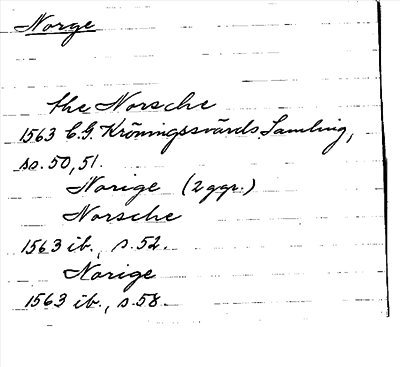 Norge
the Norsche
1563 C.G. Kröningssvärds Samling,
ss. 50, 51.
Norige (2 ggr.)
Norsche
1563 ib., s. 52.
Norige
1563 ib., s. 58.